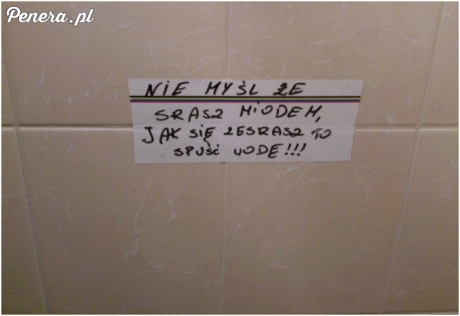 Penera.pl
NIE MYŚL ŻE
SRASZ MIODEM,
JAK SIĘ ZESRASZ TO
SPUŚĆ WODĘ!!!